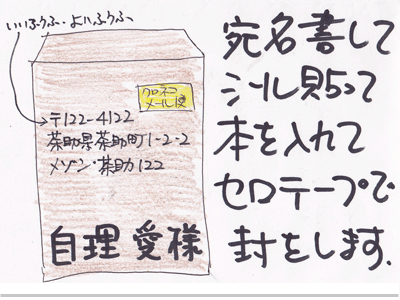 いいふうふ・よいふうふ
クロネコ
メール便
〒122-4122
茶助県茶助町1-2-2
メゾン・茶助122
自理 愛様
宛名書して
シール貼って
本を入れて
セロテープで
封をします.